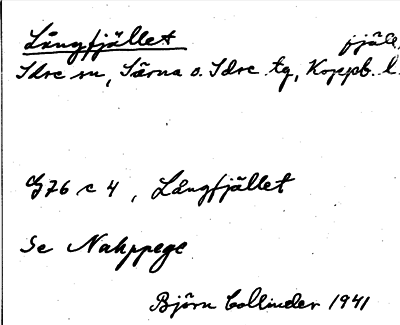 Långfjället fjäll
Idre sn, Särna o. Idre tg, Koppb. l.
G76 c 4, Långfjället
Se Nahppege
Björn Collinder 1941